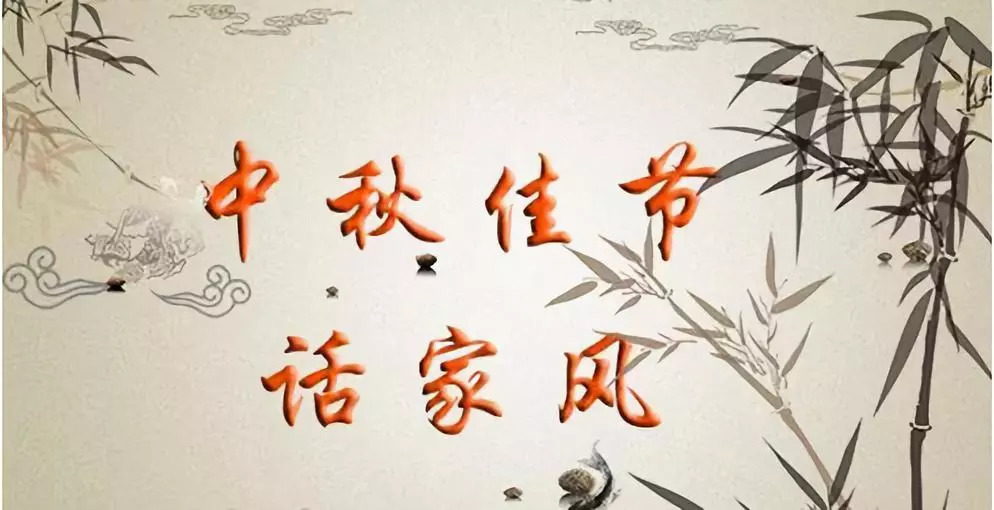 中秋佳节
话家风